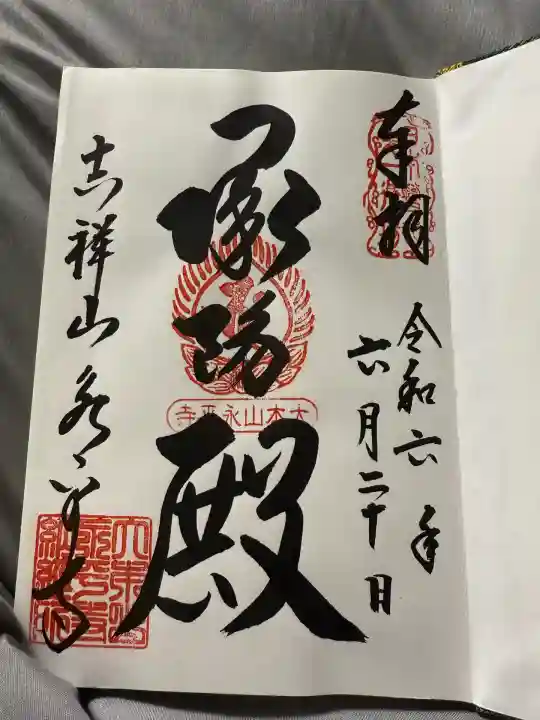 奉拝
令和六年
六月二十日
承陽殿
大本山永平寺
吉祥山永平寺